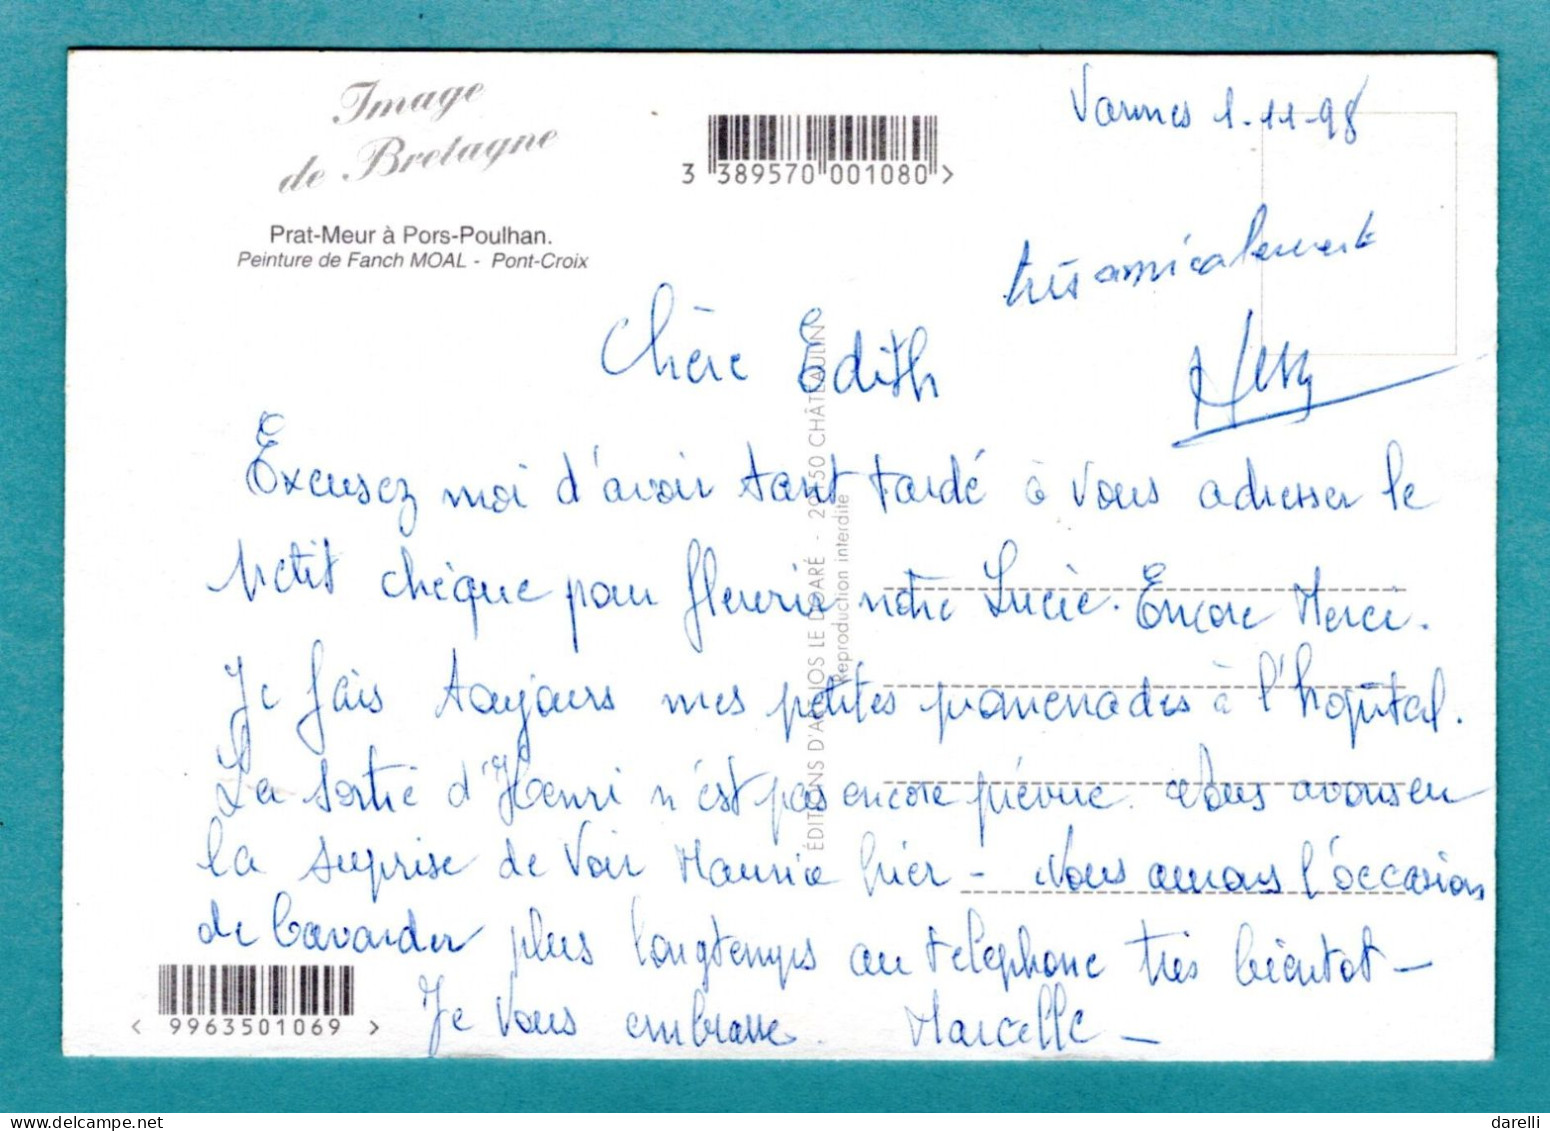 Image
de Bretagne
Prat-Meur à Pors-Poulhan.
Peinture de Fanch MOAL - Pont-Croix
3 389570 001080 >
Vannes 1-11-98
très amicalement
Chère Edith
Excusez moi d'avoir tant tardé à vous adresser le
petit chèque pour fleurir notre Lucie. Encore Merci.
Je fais toujours mes petites promenades à l'hôpital.
La sortie d'Henri n'est pas encore prévue. Nous avons eu
la surprise de voir Maurice hier - Nous aurons l'occasion
de bavarder plus longtemps au téléphone très bientot -
Je vous embrasse. Marcelle -
ÉDITIONS D'ART JOS LE DOARÉ - 29150 CHÂTEAULIN
Reproduction interdite
< 9963501069 >
darelli